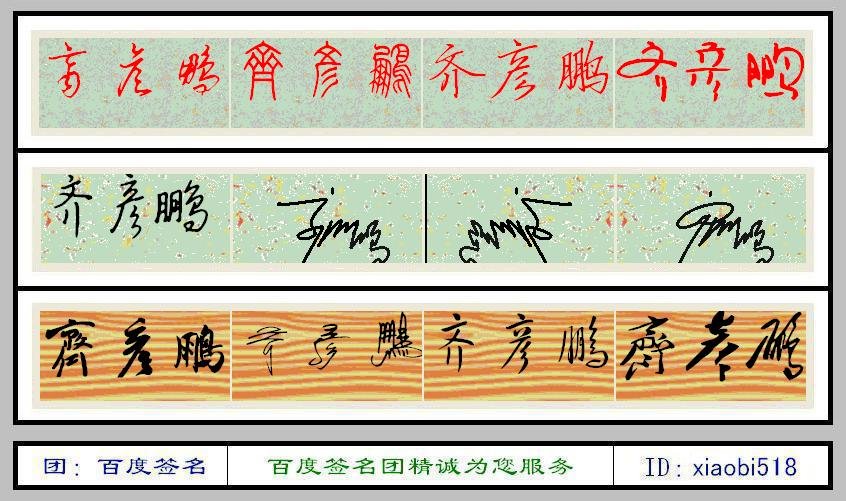 齐彦鹏 齊彦鵬 齐彦鹏 齐彦鹏
齐彦鹏
齊彦鹏 齐彦鹏 齊彦鹏
团：百度签名 百度签名团精诚为您服务 ID：xiaobi518